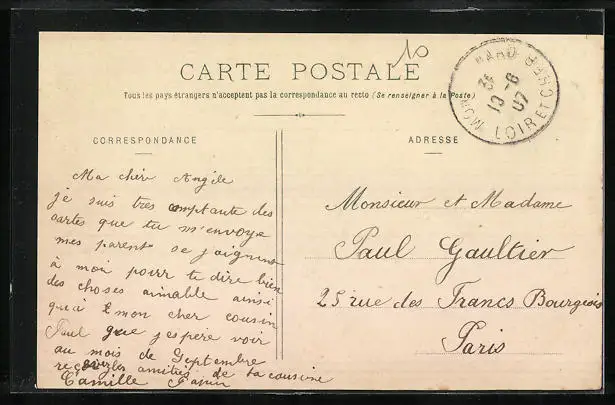 10
CARTE POSTALE
Tous les pays étrangers n'acceptent pas la correspondance au recto (Se renseigner à la Poste)
CORRESPONDANCE
Ma chèr Angèle
je suis tres comptante des
cartes que tu m'envoye
mes parent se joignent
à moi pourr te dire bien
des choses aimable ainsi
qu'à Emon cher cousin
Paul que j'espère voir
au mois de Septembre
recevez les amitiés de ta cousine
Camille
ADRESSE
Monsieur et Madame
Paul Gaultier
25 rue des Francs Bourgeois
Paris
LOIR ET CHER
10 -8
07